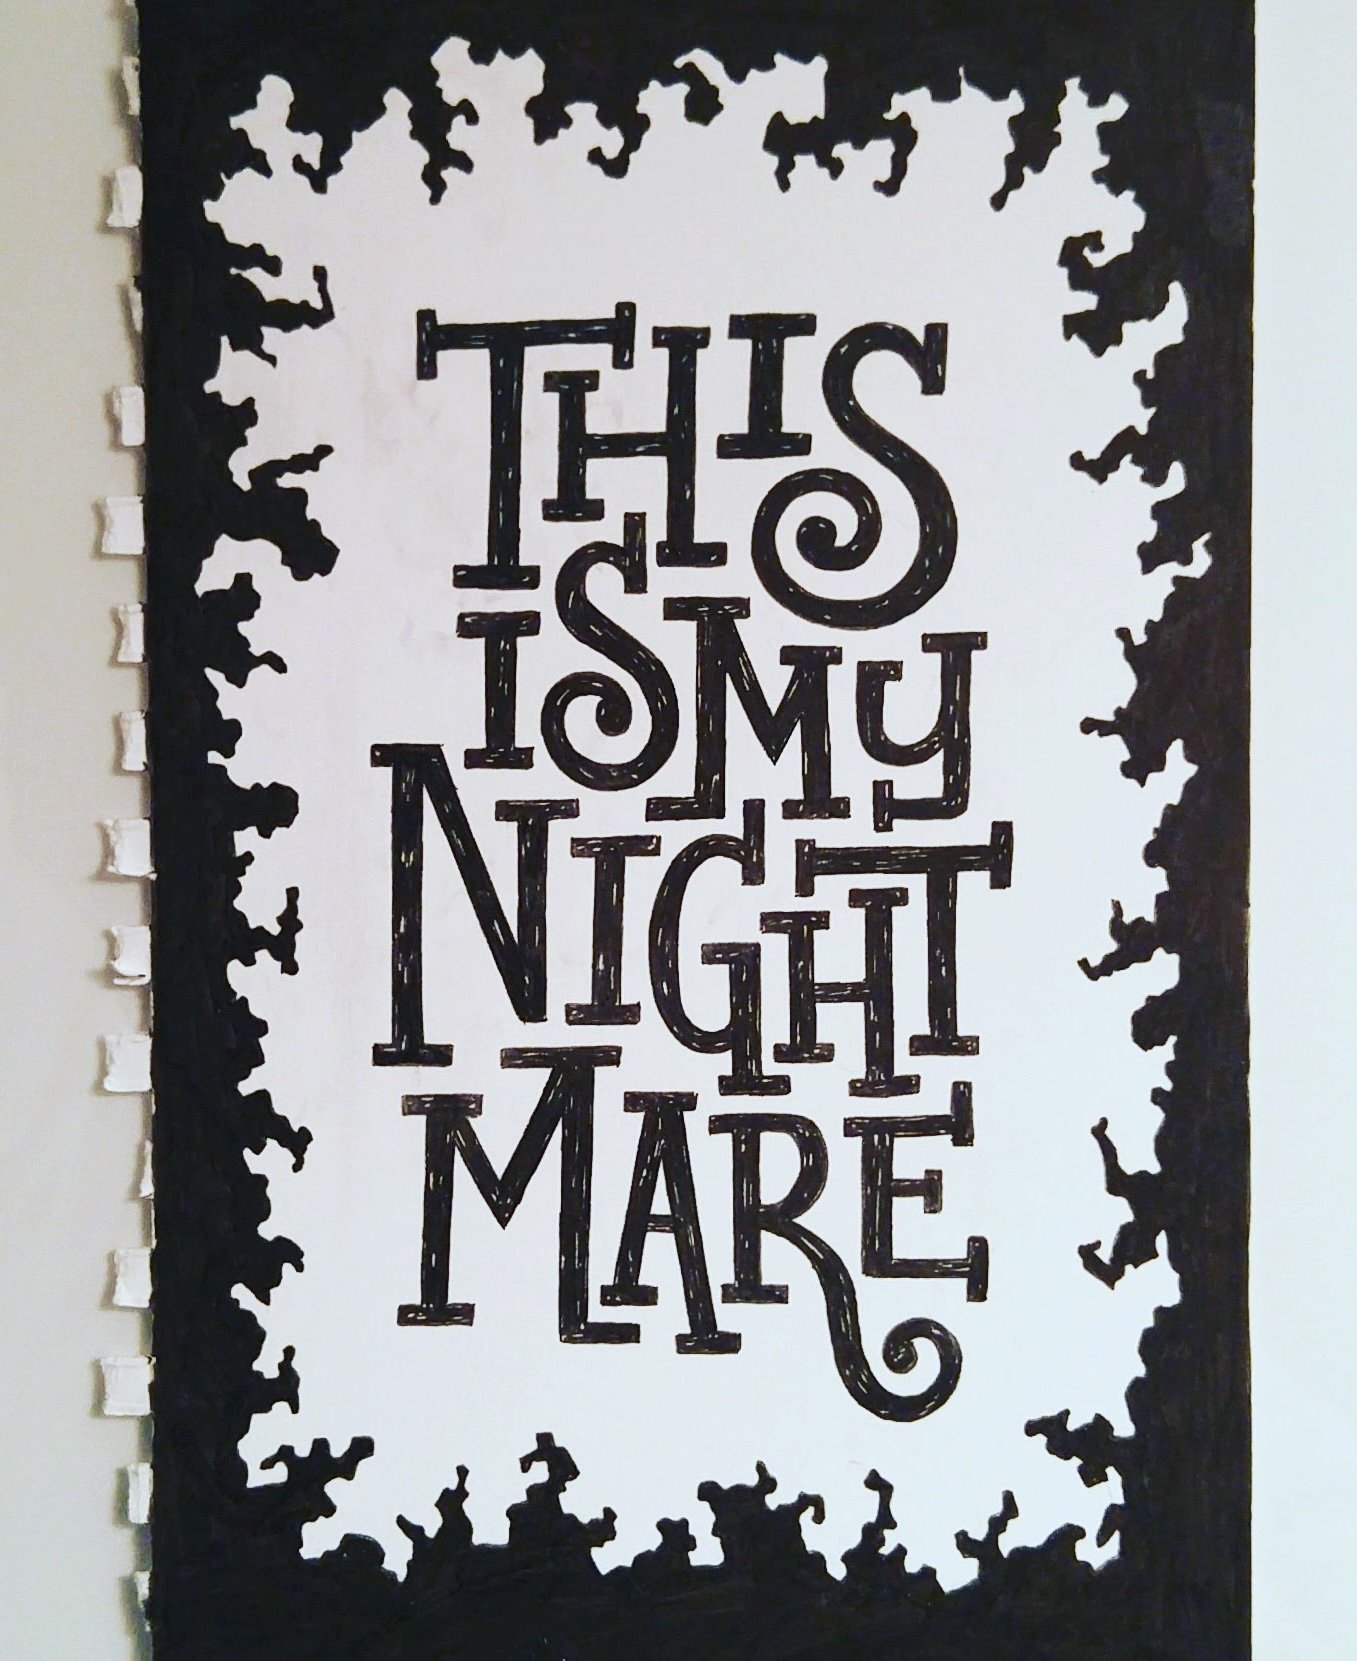 THIS
IS MY
NIGHT
MARE